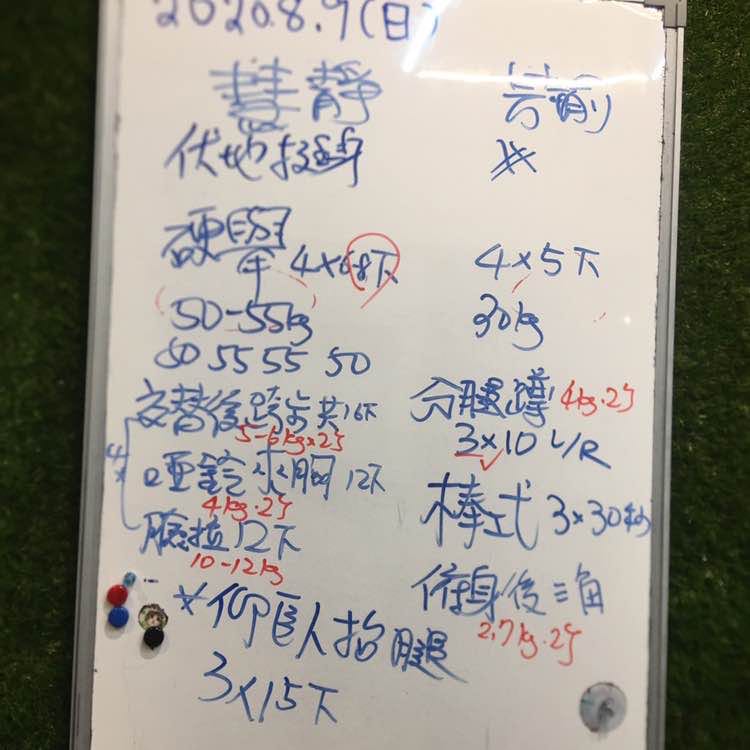 2020.8.9(日)
慧靜
伏地挺
硬舉 4×6-8下
50-55kg
50 55 55 50
交替後跨步 共16下
5-6kg×2
4×
啞鈴 胸 12下
4kg·2
12下
10-12kg
※仰臥抬腿
3×15下
4×5下
30kg
分腿蹲 4kg·2
3×10 L/R
棒式 3×30秒
俯身後三角
2.7kg·2